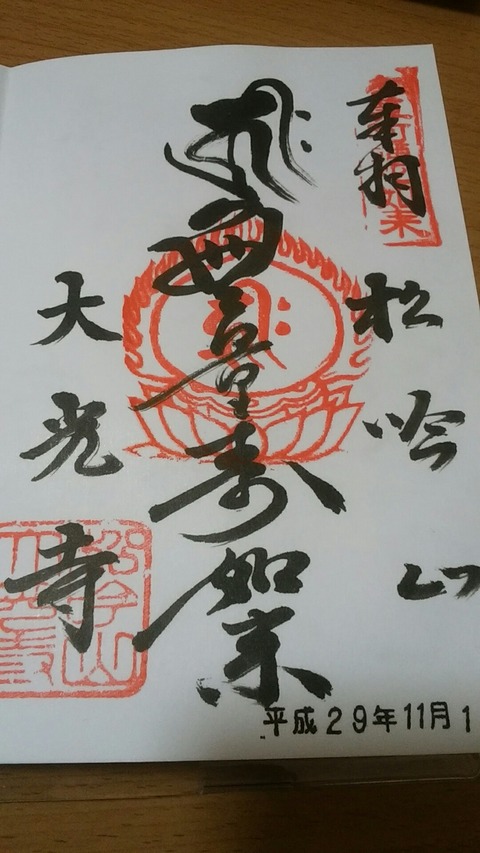 奉拝
松吟山
無量寿如来
大光寺
平成29年11月1